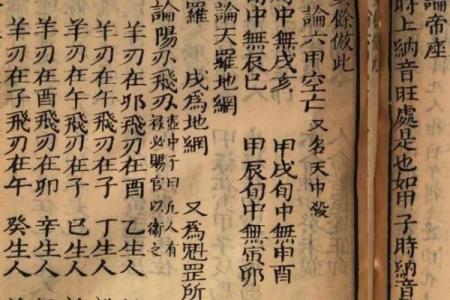 論帝座
時上納音旺處是也如甲子時納音
餘倣此
論六甲空亡 又名天中殺
旬中無戌亥 甲戌旬中無申酉
旬中無辰巳 甲辰旬中無寅卯
論天羅地網
羅 戌為地網 又為魁罡所
論陽刃飛刃 壺中子曰凡人有祿必賜官以衛之
羊刃在卯飛刃在酉 乙生人
羊刃在午飛刃在子 丁生人
羊刃在午飛刃在子 己生人
羊刃在酉飛刃在卯 辛生人
羊刃在子飛刃在午 癸生人